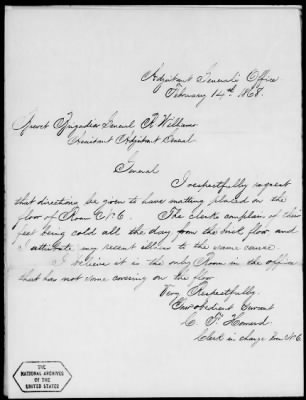 Adjutant General's Office
February 14th 1868.
Brevet Brigadier General R Williams
Assistant Adjutant General
General
I respectfully request
that directions be given to have matting placed on the
floor of Room No 6. The clerks complain of their
feet being cold all the day from the brick floor and
I attribute my recent illness to the same cause.
I believe it is the only Room in the office
that has not some covering on the floor
Very Respectfully.
Your obedient Servant
C. F.
Clerk in charge Room No 6.
THE
NATIONAL ARCHIVES
OF THE
UNITED STATES